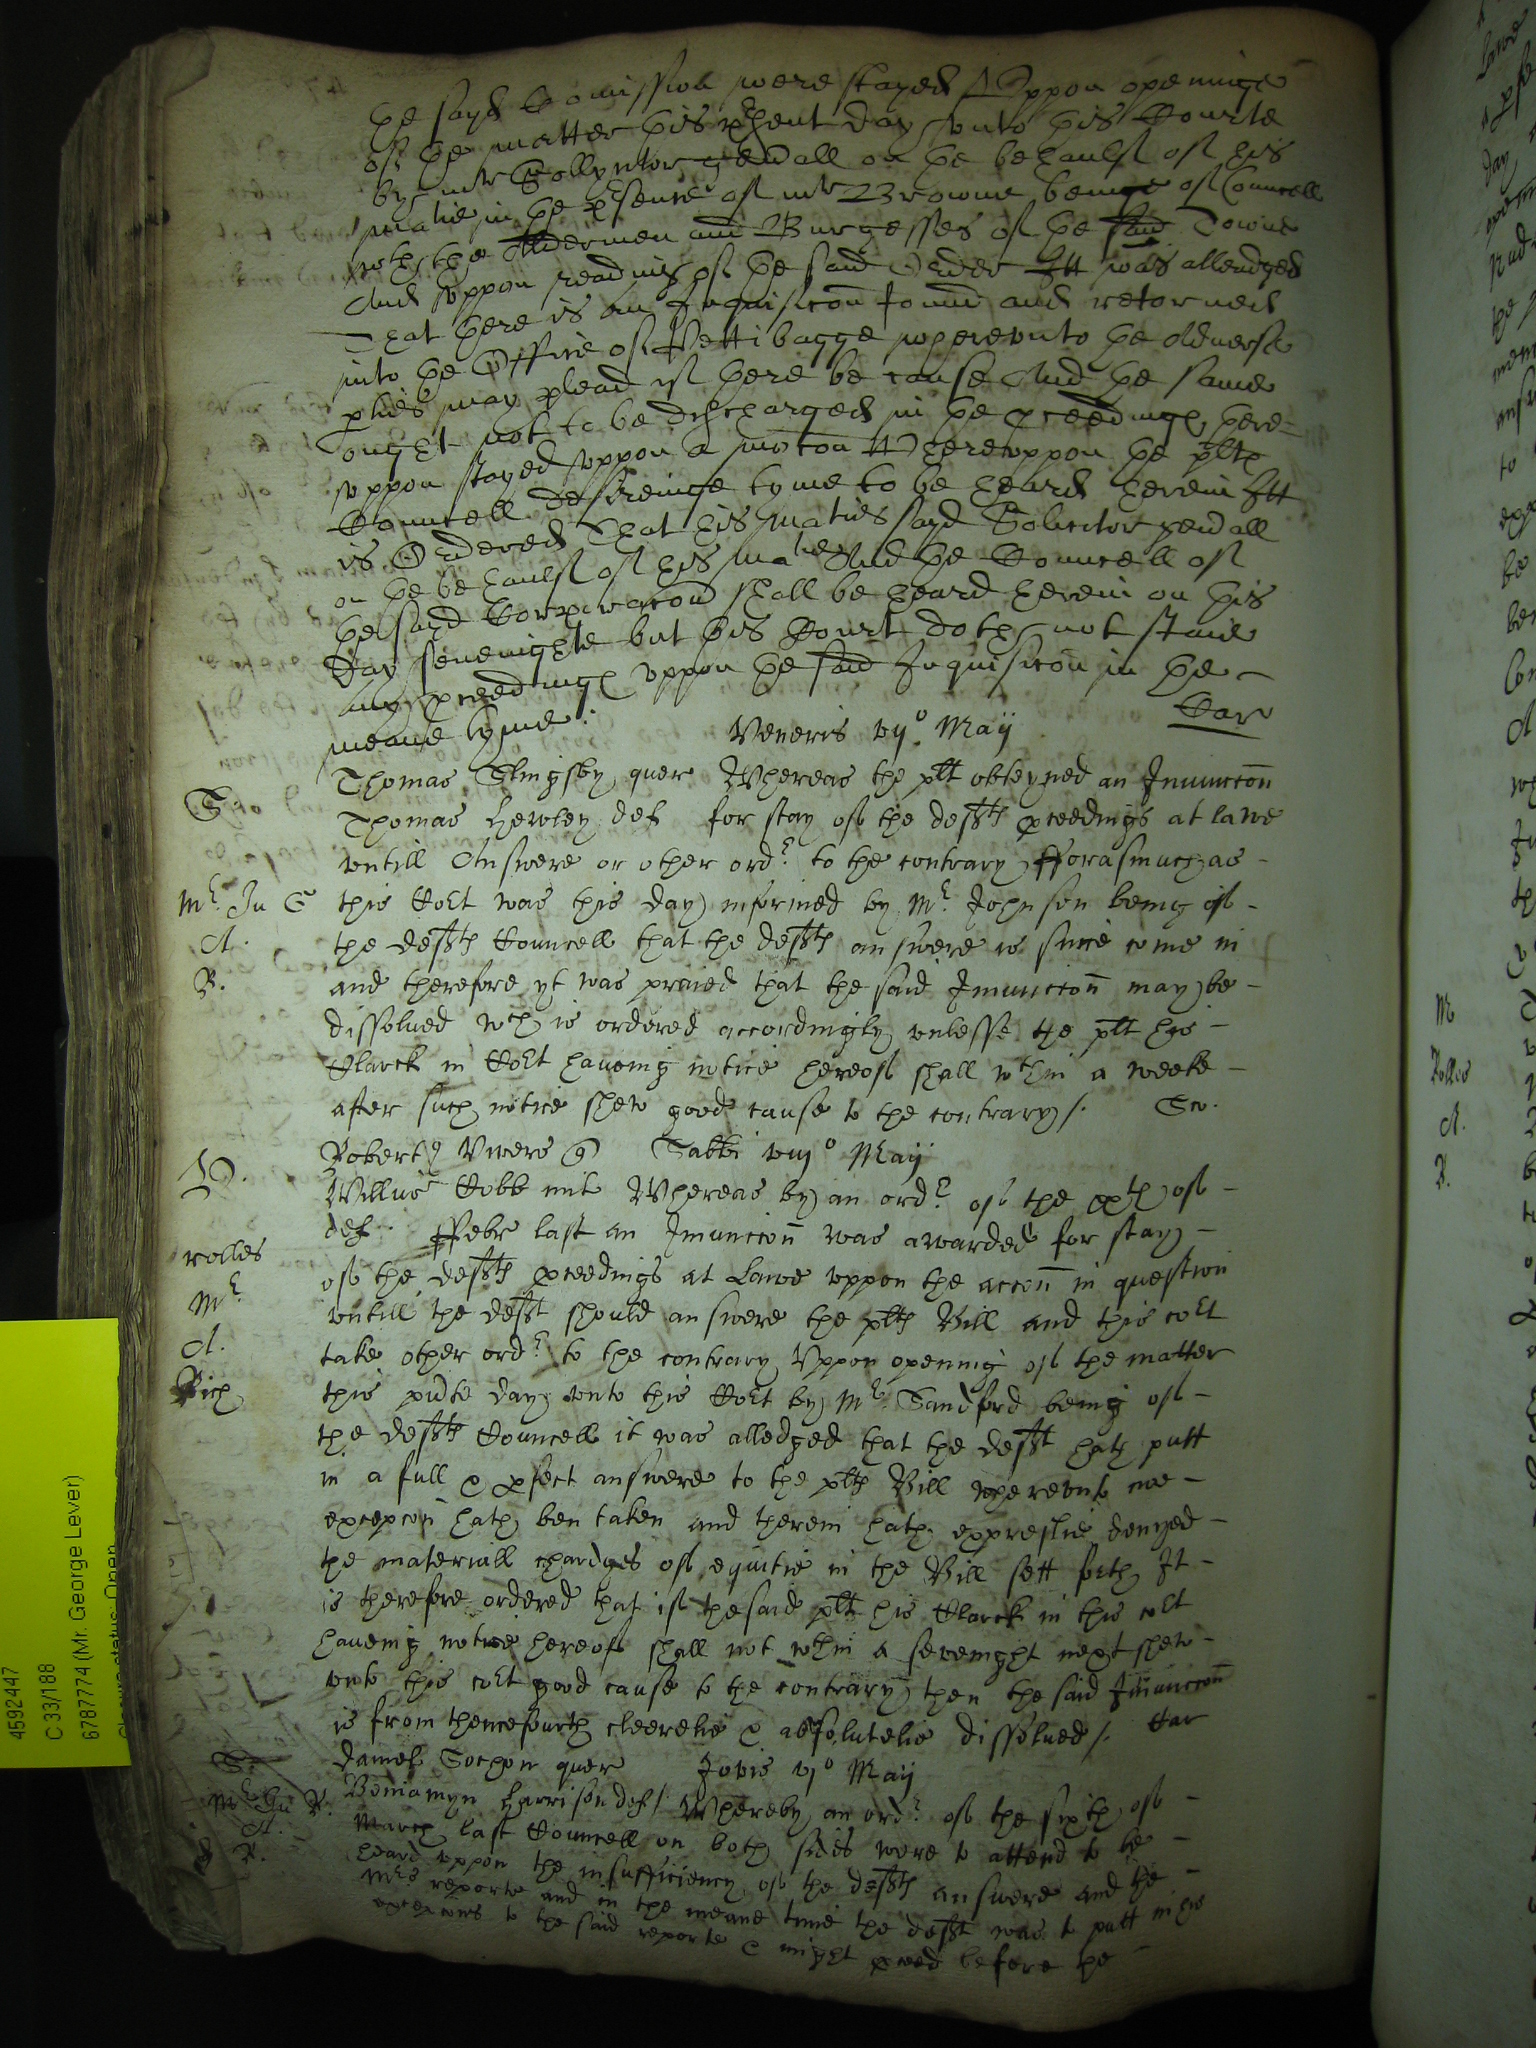 the sayd Comission were stayed Uppon openinge
of the matter this psent day unto this Courte
by mr Sollycitor genall on the behaulf of his
matie in the psence of mr Browne beinge of Councell
wth the Aldermen and Burgesses of the said Towne
And uppon readinge of the said Order Itt was alleadged
That there is an Inquisicon found and retorned
into the Office of Pettibagge whereunto the adverse
pties may plead if there be cause And the same
ought not to be discharged in the pceedings there-
uppon stayed uppon a mocon Whereuppon the plts
Councell desireinge tyme to be heard herein Itt
is Ordered That his maties sayd Solicitor genall
on the behaulf of his matie And the Councell of
the sayd Corporacon shall be heard herein on this
day sevenighte but this Court doth not staie
any pceedings uppon the said Inquisicon in the
meane tyme. Car
Veneris vijo. Maij
S. Thomas Slingsby quer Whereas the plt obteyned an Iniunccon
Thomas Hewley def for stay of the defts pceedings at lawe
untill Answere or other ordr to the contrary fforasmuch as
Mr. Ju S this Cort was this day informed by Mr. Johnson being of
A. the defts Councell that the defts answere is since come in
R. and therefore yt was praied that the said Iniunccon may be
dissolved wch is ordered accordingly unlesse the plt his
Clarck in Cort haveing notice hereof shall wthin a weeke
after such notice shew good cause to the contrary /.
Robert Vivers q Sabbi viijo Maij
Willus Cobb mil Whereas by an ordr of the xxth of
def. ffebr last an Iniunccon was awarded for stay
rolles of the defts pceedings at Lawe uppon the accon in question
Mr. untill the deft should answere the plts Bill and this cort
A. take other ordr to the contrary Uppon opening of the matter
Rich this pnte day unto this Cort by Mr. Sandford being of
the defts Councell it was alledged that the deft hath putt
in a full & pfect answere to the plts Bill whereunto noe
excepcon hath ben taken and therein hath expreslie denyed
the materiall chardges of equitie in the Bill sett forth It
is therefore ordered that if the said plt his Clarck in this cort
haveing notice hereof shall not wthin a sevenight next shew
unto this cort good cause to the contrary then the said Iniunccon
is from thencefourth cleerelie & absolutelie dissolved /. Car
S. Daniel quer Jovis vjo Maij
Mr. Ju R. Beniamyn Harrison def / Whereby an ordr of the sixth of
A. March last Councell on both sides were to attend to be
R. heard uppon the insufficiency of the defts answere and the
Mrs reporte and in the meane time the deft was to putt in his
excepcions to the said reporte & might pceed before the
4592447
C 33/188
6787774 (Mr. George Lever)
Closure status: Open
M
Rolles
A.
R.